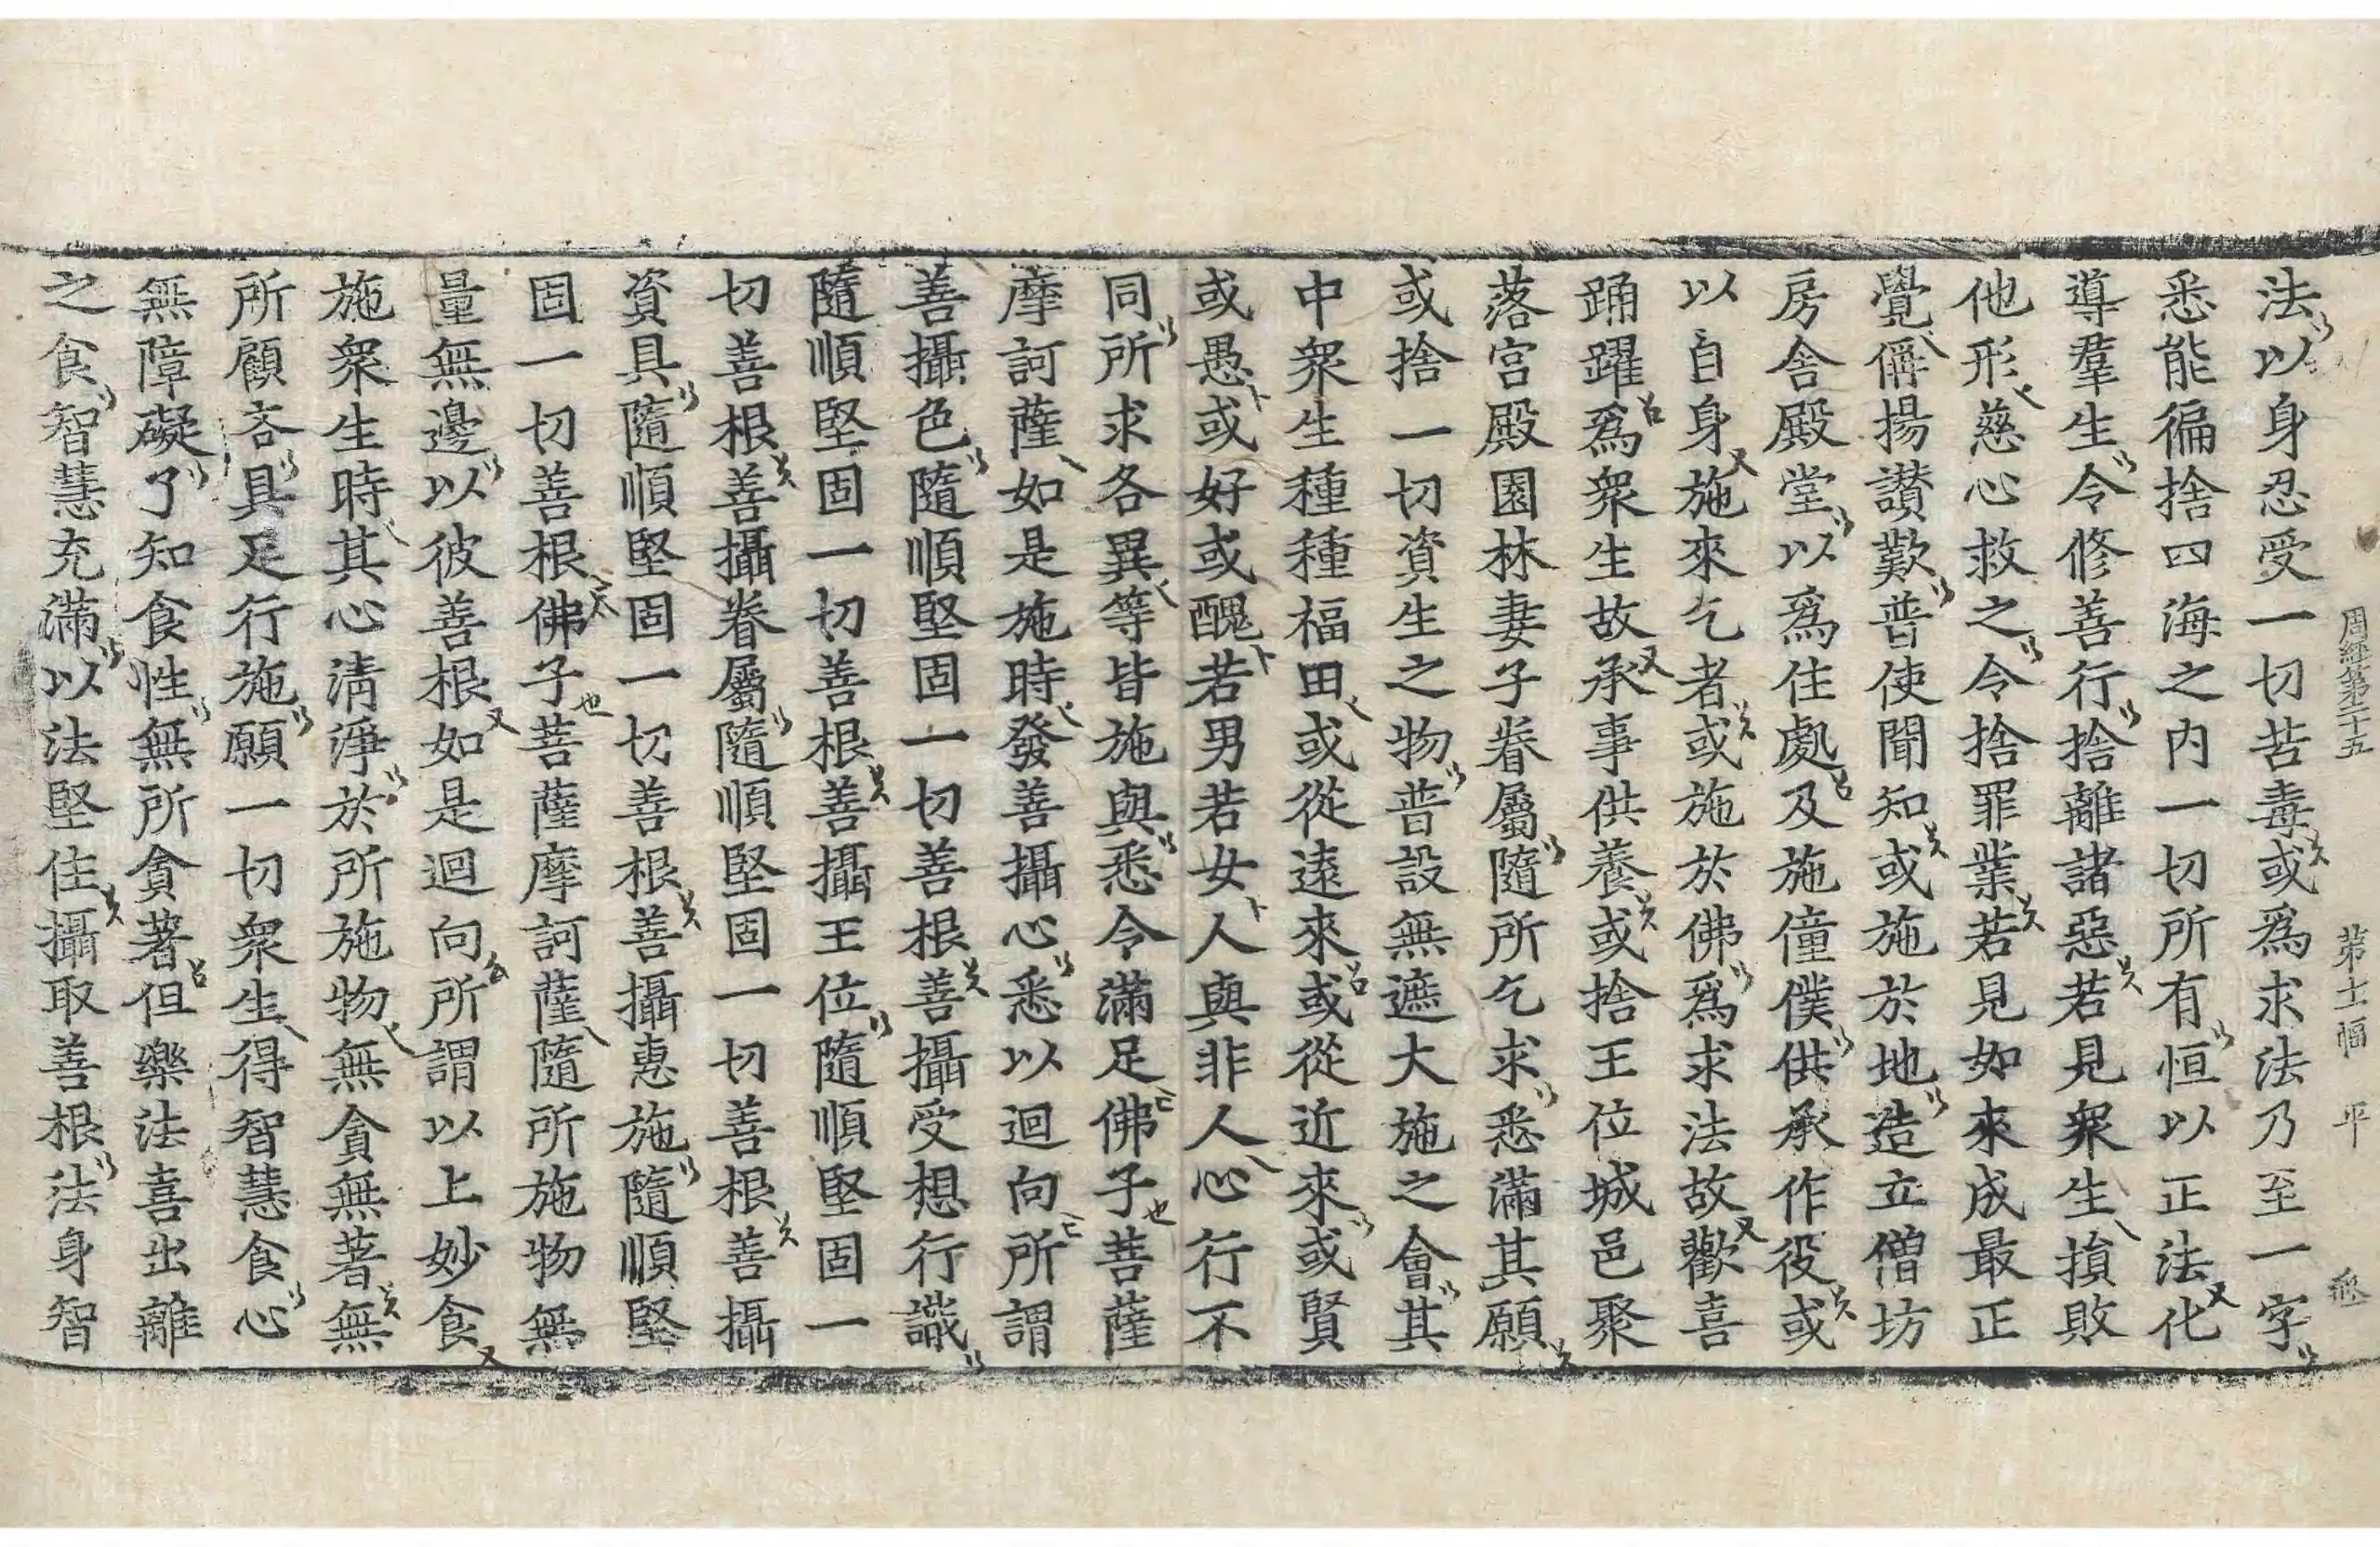 周經第二十五 第十一幅 平
法以身忍受一切苦毒或爲求法乃至一字
悉能徧捨四海之內一切所有恒以正法化
導羣生令修善行捨離諸惡若見衆生損敗
他形慈心救之令捨罪業若見如來成最正
覺偁揚讚歎普使聞知或施於地造立僧坊
房舍殿堂以爲住處及施僮僕供承作役或
以自身施來乞者或施於佛爲求法故歡喜
踊躍爲衆生故承事供養或捨王位城邑聚
落宮殿園林妻子眷屬隨所乞求悉滿其願
或捨一切資生之物普設無遮大施之會其
中衆生種種福田或從遠來或從近來或賢
或愚或好或醜若男若女人與非人心行不
同所求各異等皆施與悉令滿足佛子菩薩
摩訶薩如是施時發善攝心悉以迴向所謂
善攝色隨順堅固一切善根善攝受想行識
隨順堅固一切善根善攝王位隨順堅固一
切善根善攝眷屬隨順堅固一切善根善攝
資具隨順堅固一切善根善攝惠施隨順堅
固一切善根佛子菩薩摩訶薩隨所施物無
量無邊以彼善根如是迴向所謂以上妙食
施衆生時其心清淨於所施物無貪無著無
所顧吝具足行施願一切衆生得智慧食心
無障礙了知食性無所貪著但樂法喜出離
之食智慧充滿以法堅住攝取善根法身智